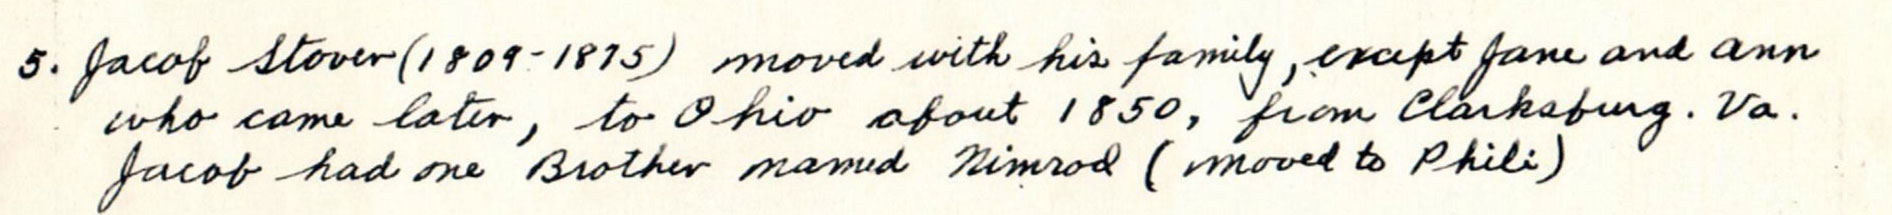 5. Jacob Stover (1809-1875) moved with his family, except Jane and Ann
who came later, to Ohio about 1850, from Clarksburg. Va.
Jacob had one Brother named Nimrod (moved to Phili)